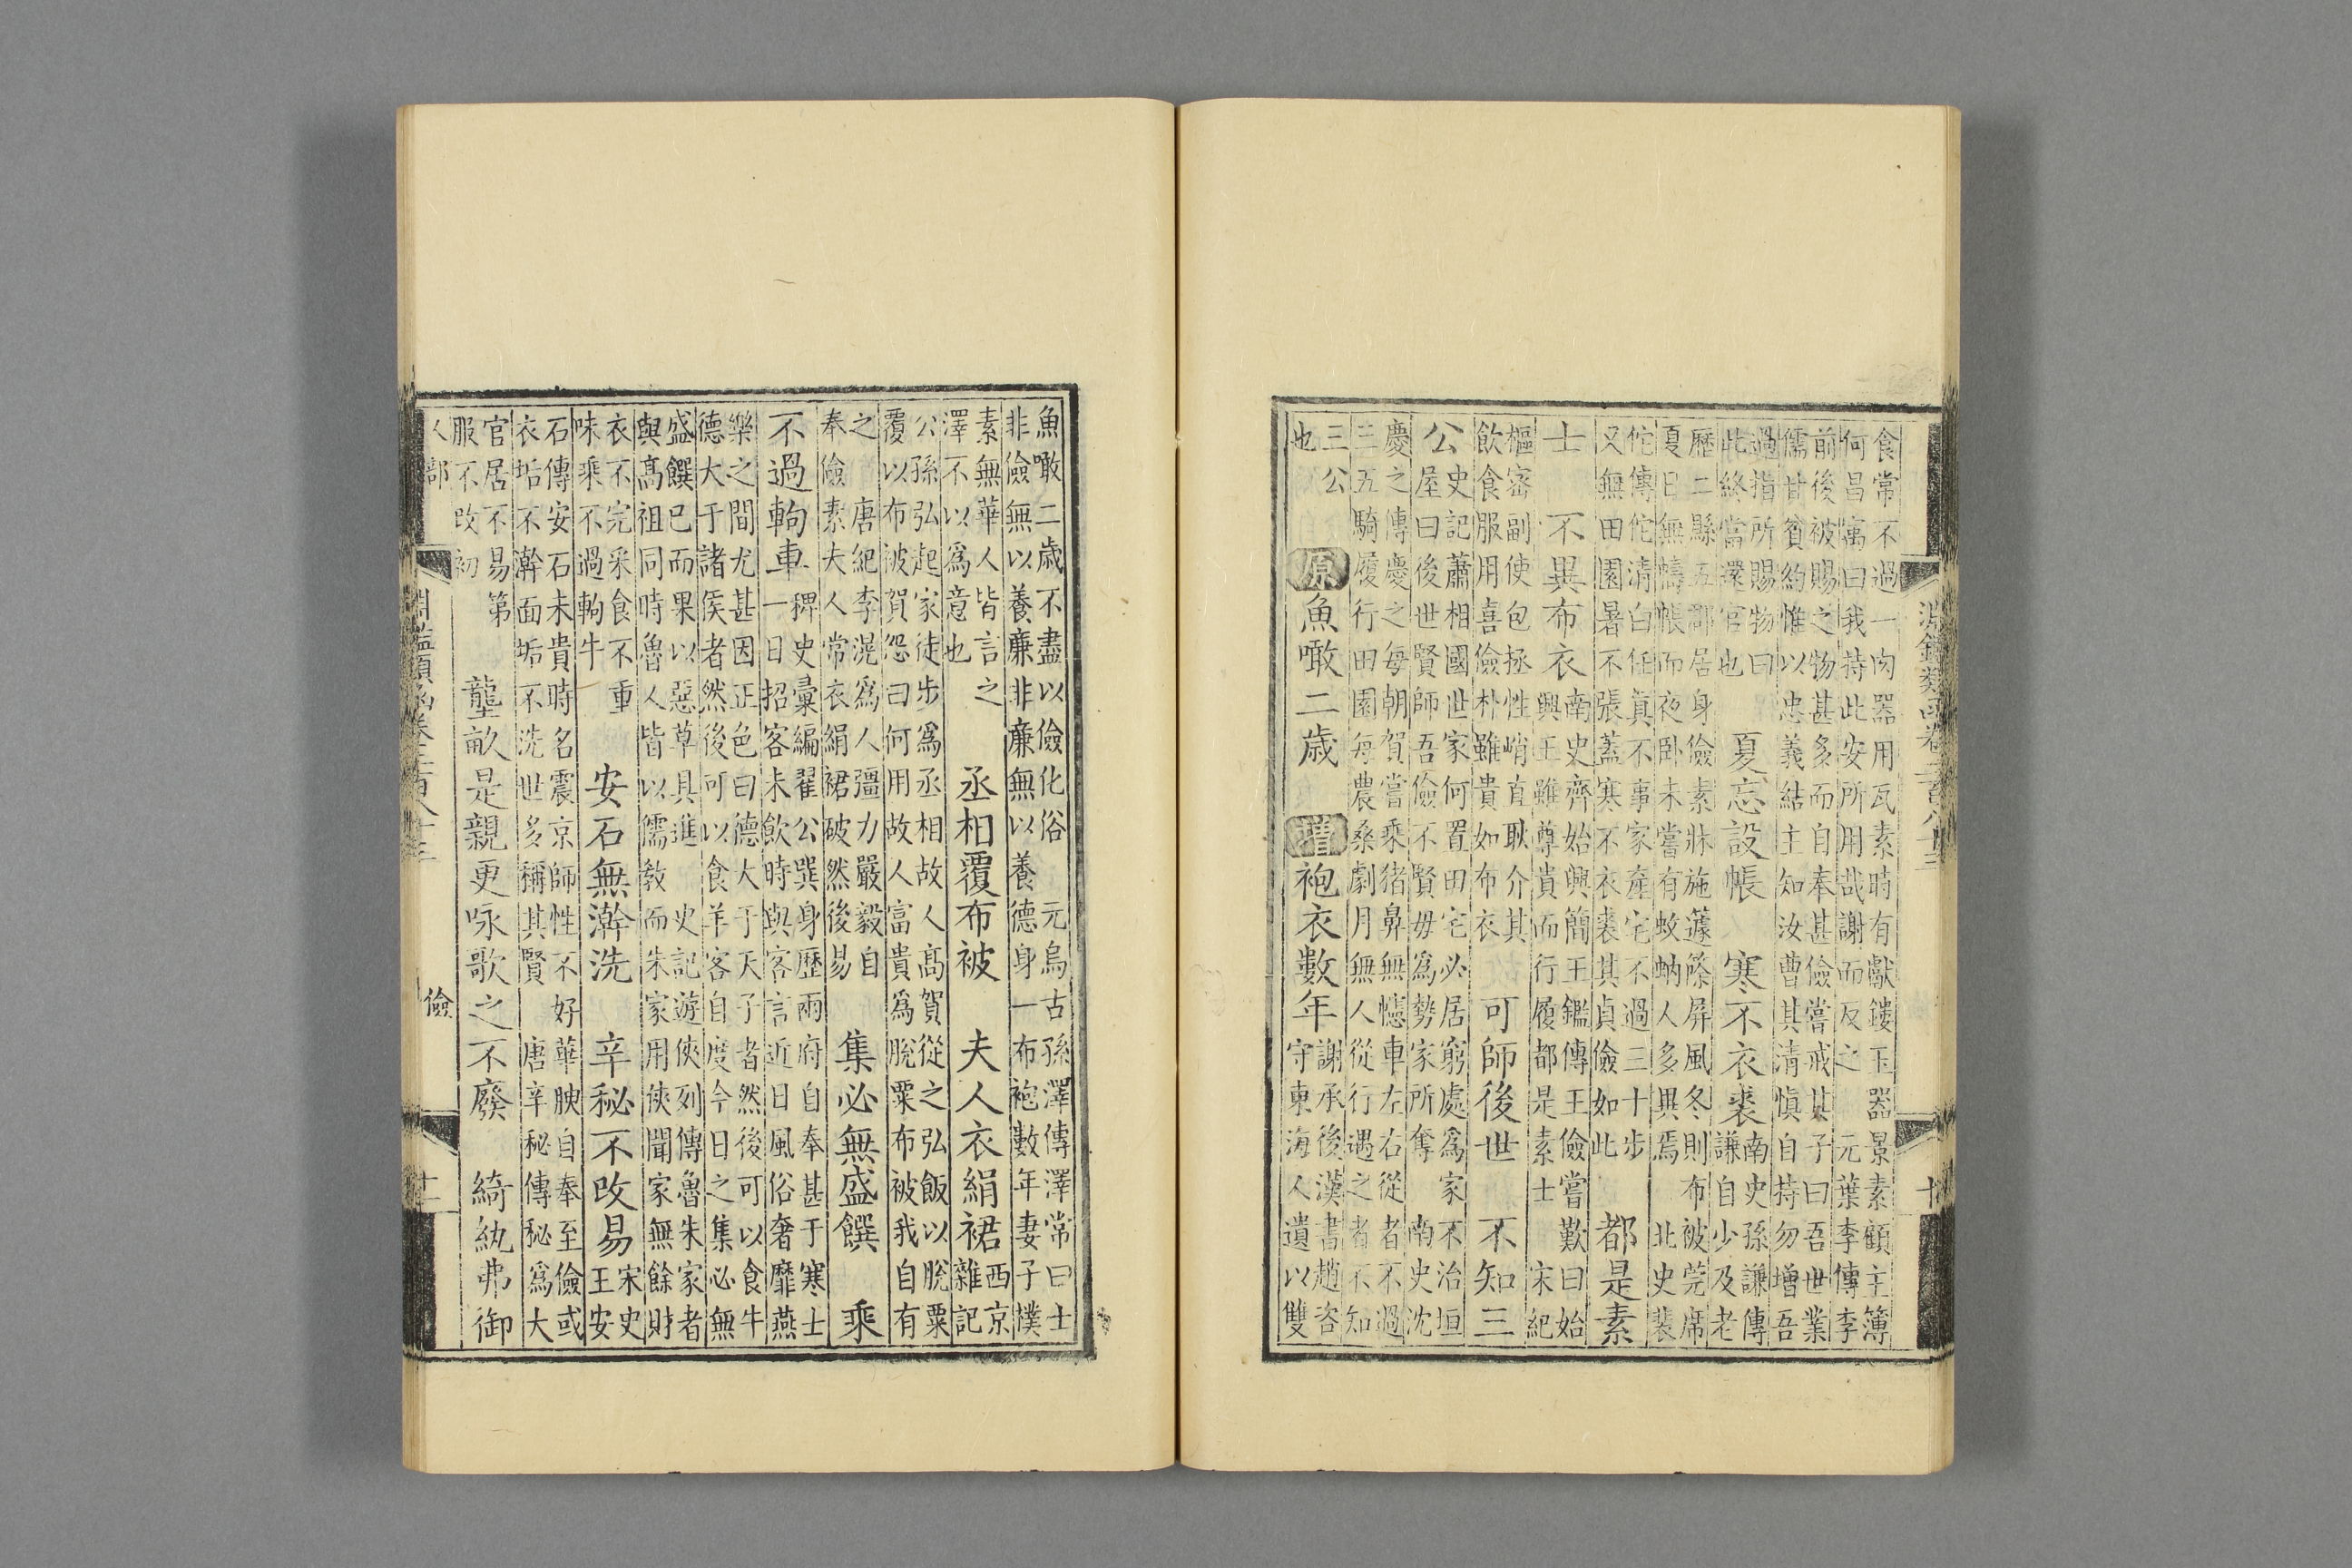 淵鑑類函卷二百八十三 十
食常不過一肉器用瓦素時有獻鏤玉器景素顧主簿
何昌㝢曰我持此安所用哉謝而反之 元葉李傳李
前後被賜之物甚多而自奉甚儉嘗戒其子曰吾世業
儒甘貧約惟以忠義結主知汝曹其清慎自持勿增吾
過指所賜物曰
此終當還官也
夏忘設帳 寒不衣裘
南史孫謙傳
謙自少及老
歷二縣五郡居身儉素牀施蘧蒢屏風冬則布被莞席
夏日無幬帳而夜卧未嘗有蚊蚋人多異焉 北史裴
佗傳佗清白任真不事家產宅不過三十步
又無田園暑不張蓋寒不衣裘其貞儉如此
都是素
士 不異布衣
南史齊始興簡王鑑傳王儉嘗歎曰始
興王雖尊貴而行履都是素士 宋紀
樞密副使包拯性峭直耿介其
飲食服用喜儉朴雖貴如布衣
可師後世 不知三
公
史記蕭相國世家何置田宅必居窮處爲家不治垣
屋曰後世賢師吾儉不賢毋爲勢家所奪 南史沈
慶之傳慶之每朝賀嘗乘猪鼻無幰車左右從者不過
三五騎履行田園每農桑劇月無人從行遇之者不知
三公
也
原 魚噉二歲 增 袍衣數年
謝承後漢書趙咨
守東海人遺以雙
魚噉二歲不盡以儉化俗 元烏古孫澤傳澤常曰士
非儉無以養廉非廉無以養德身一布袍數年妻子樸
素無華人皆言之
澤不以爲意也
丞相覆布被 夫人衣絹裙
西京
雜記
公孫弘起家徒步爲丞相故人高賀從之弘飯以脫粟
覆以布被賀怨曰何用故人富貴爲脫粟布被我自有
之 唐紀李滉爲人彊力嚴毅自
奉儉素夫人常衣絹裙破然後易
集必無盛饌 乘
不過軥車
稗史彙編翟公巽身歷兩府自奉甚于寒士
一日招客未飲時與客言近日風俗奢靡燕
樂之間尤甚因正色曰德大于天子者然後可以食牛
德大于諸侯者然後可以食羊客自度今日之集必無
盛饌已而果以惡草具進 史記遊俠列傳魯朱家者
與高祖同時魯人皆以儒教而朱家用俠聞家無餘財
衣不完采食不重
味乘不過軥牛
安石無澣洗 辛秘不改易
宋史
王安
石傳安石未貴時名震京師性不好華腴自奉至儉或
衣垢不澣面垢不洗世多稱其賢 唐辛秘傳秘爲大
官居不易第
服不改初
壟畝是親更咏歌之不廢 綺紈弗御
人部 淵鑑類函卷二百八十三 儉 十一